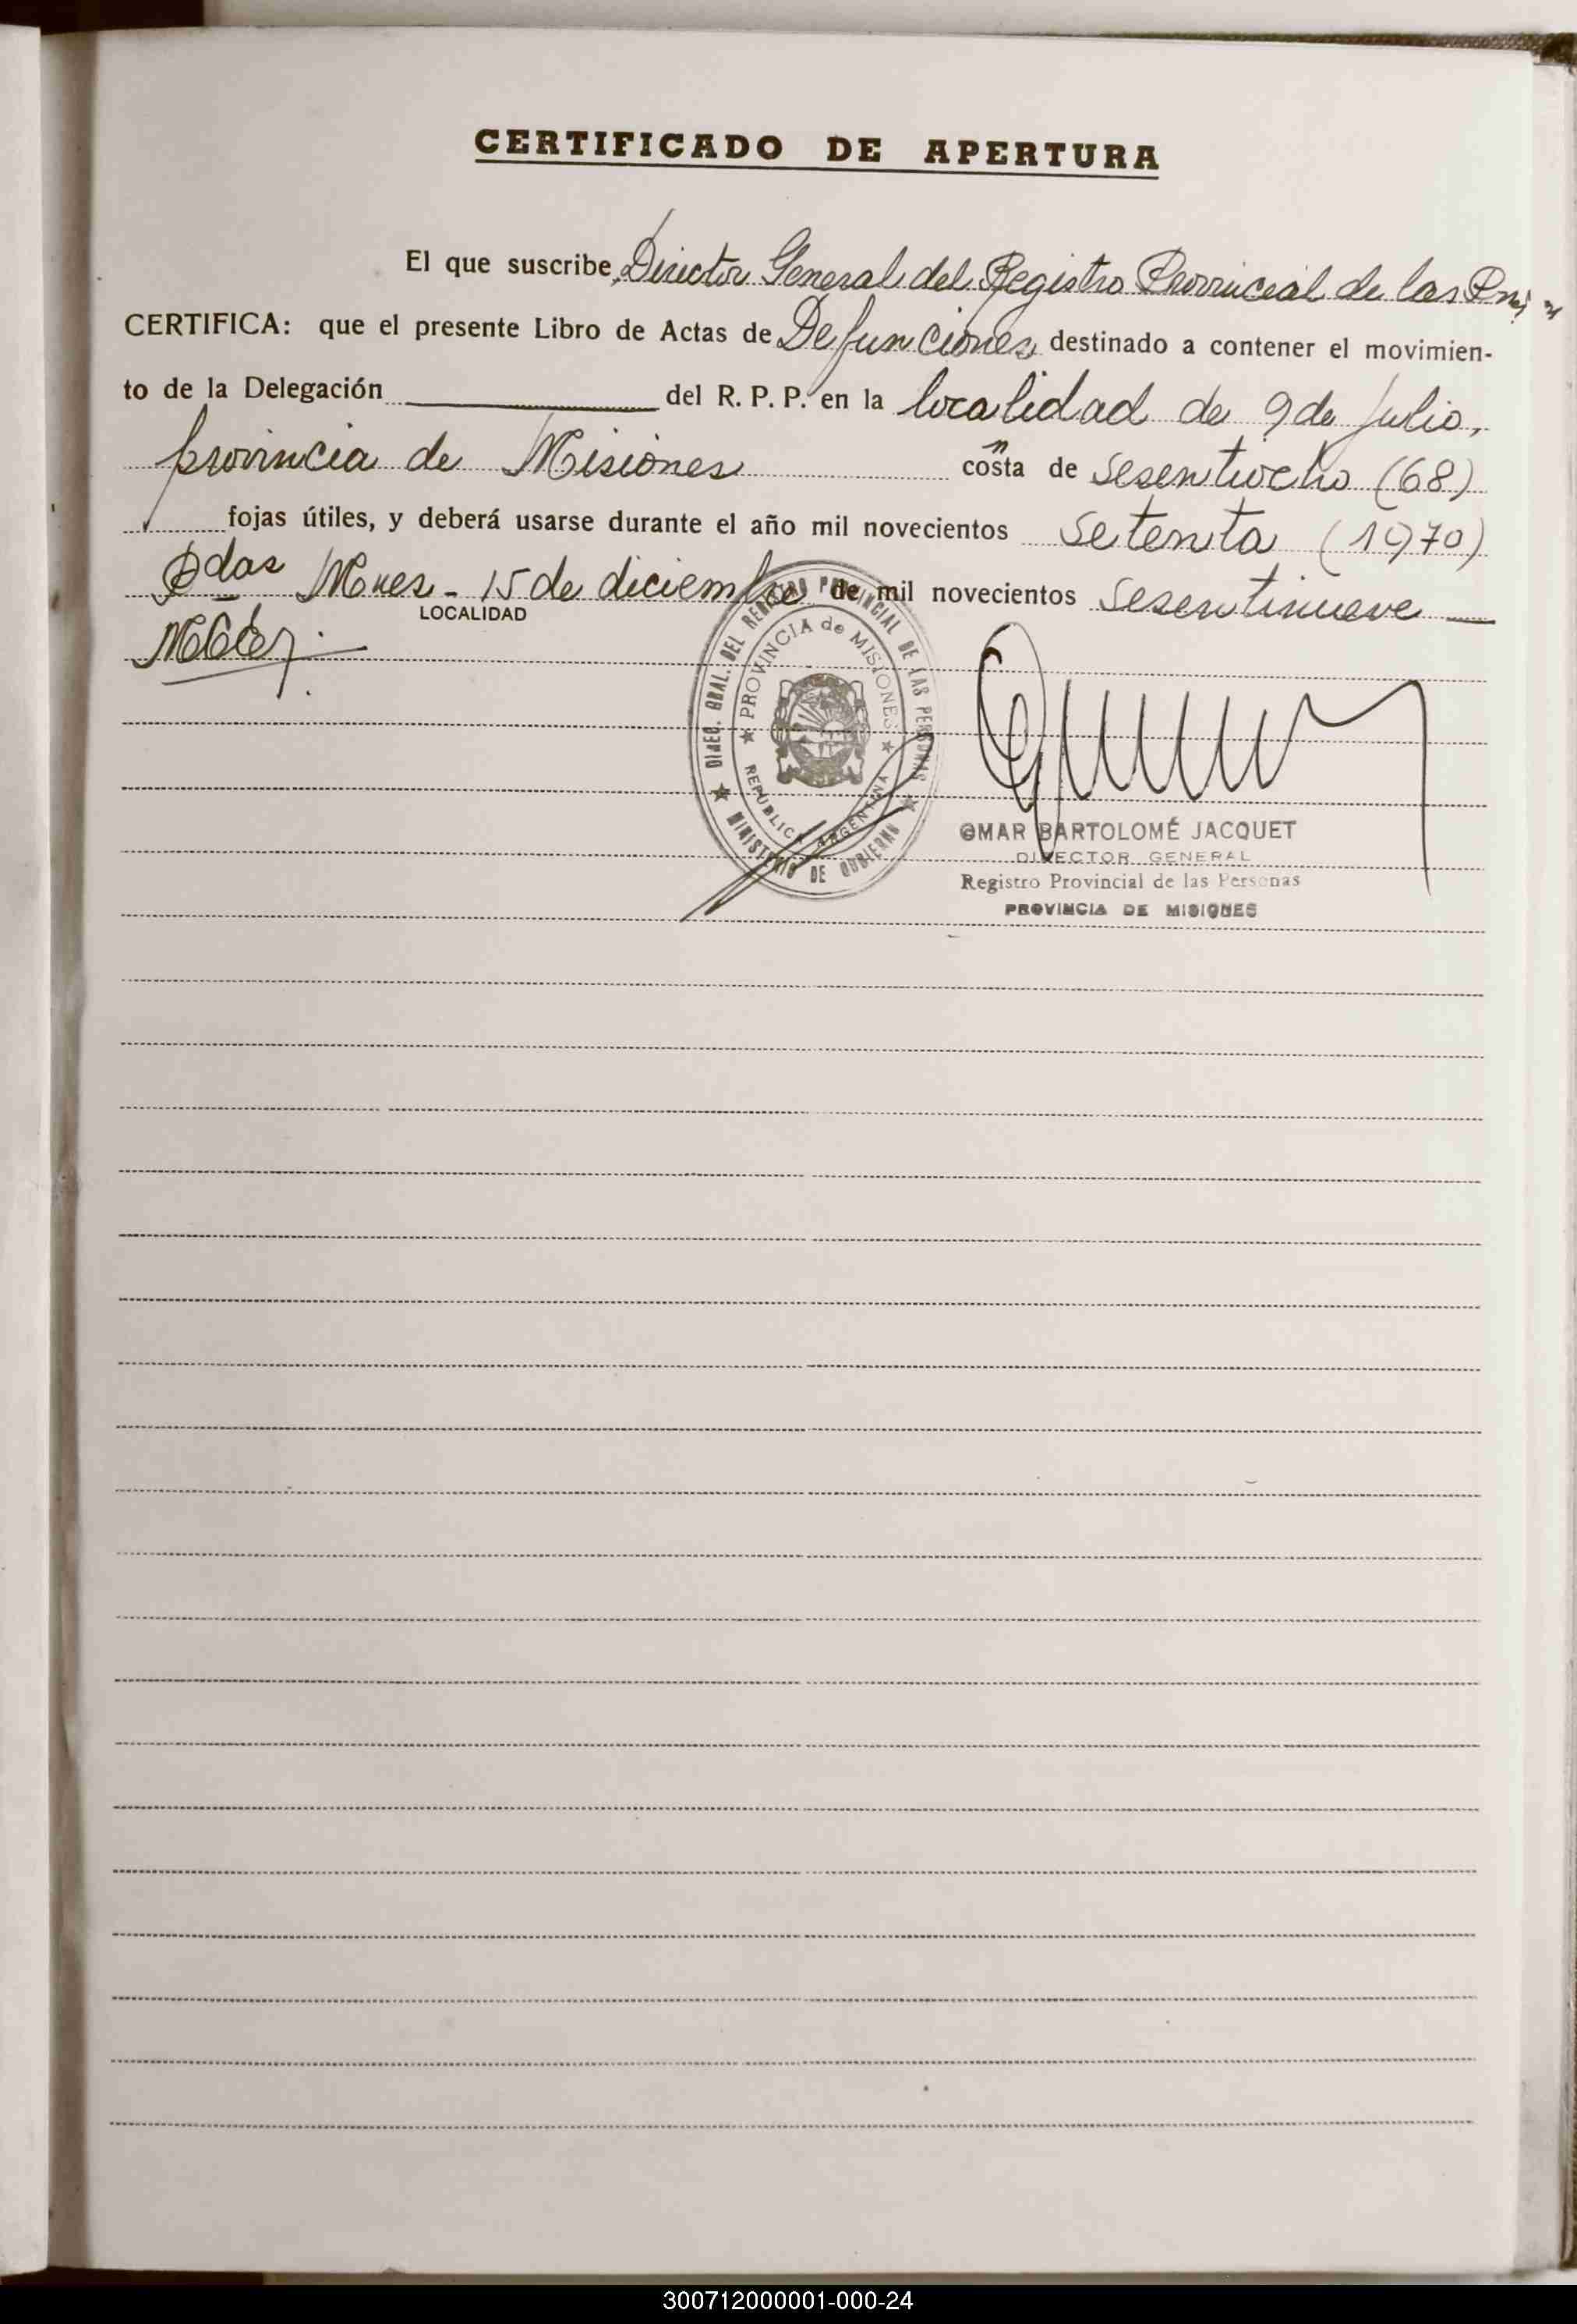 CERTIFICADO DE APERTURA
El que suscribe, Director General del Registro Provincial de las
CERTIFICA: que el presente Libro de Actas de Defunciones destinado a contener el movimien-
to de la Delegación del R. P. P. en la localidad de 9 de Julio,
provincia de Misiones costa de sesentiocho (68)
fojas útiles, y deberá usarse durante el año mil novecientos setenta (1970)
Pdas Mnes - 15 de diciembre de mil novecientos sesentinueve
LOCALIDAD
DIREC. GRAL. DEL REGISTRO PROVINCIAL DE LAS PERSONAS
PROVINCIA de MISIONES
REPUBLICA ARGENTINA
MINISTERIO DE GOBIERNO
OMAR BARTOLOMÉ JACQUET
DIRECTOR GENERAL
Registro Provincial de las Personas
PROVINCIA DE MISIONES
300712000001-000-24